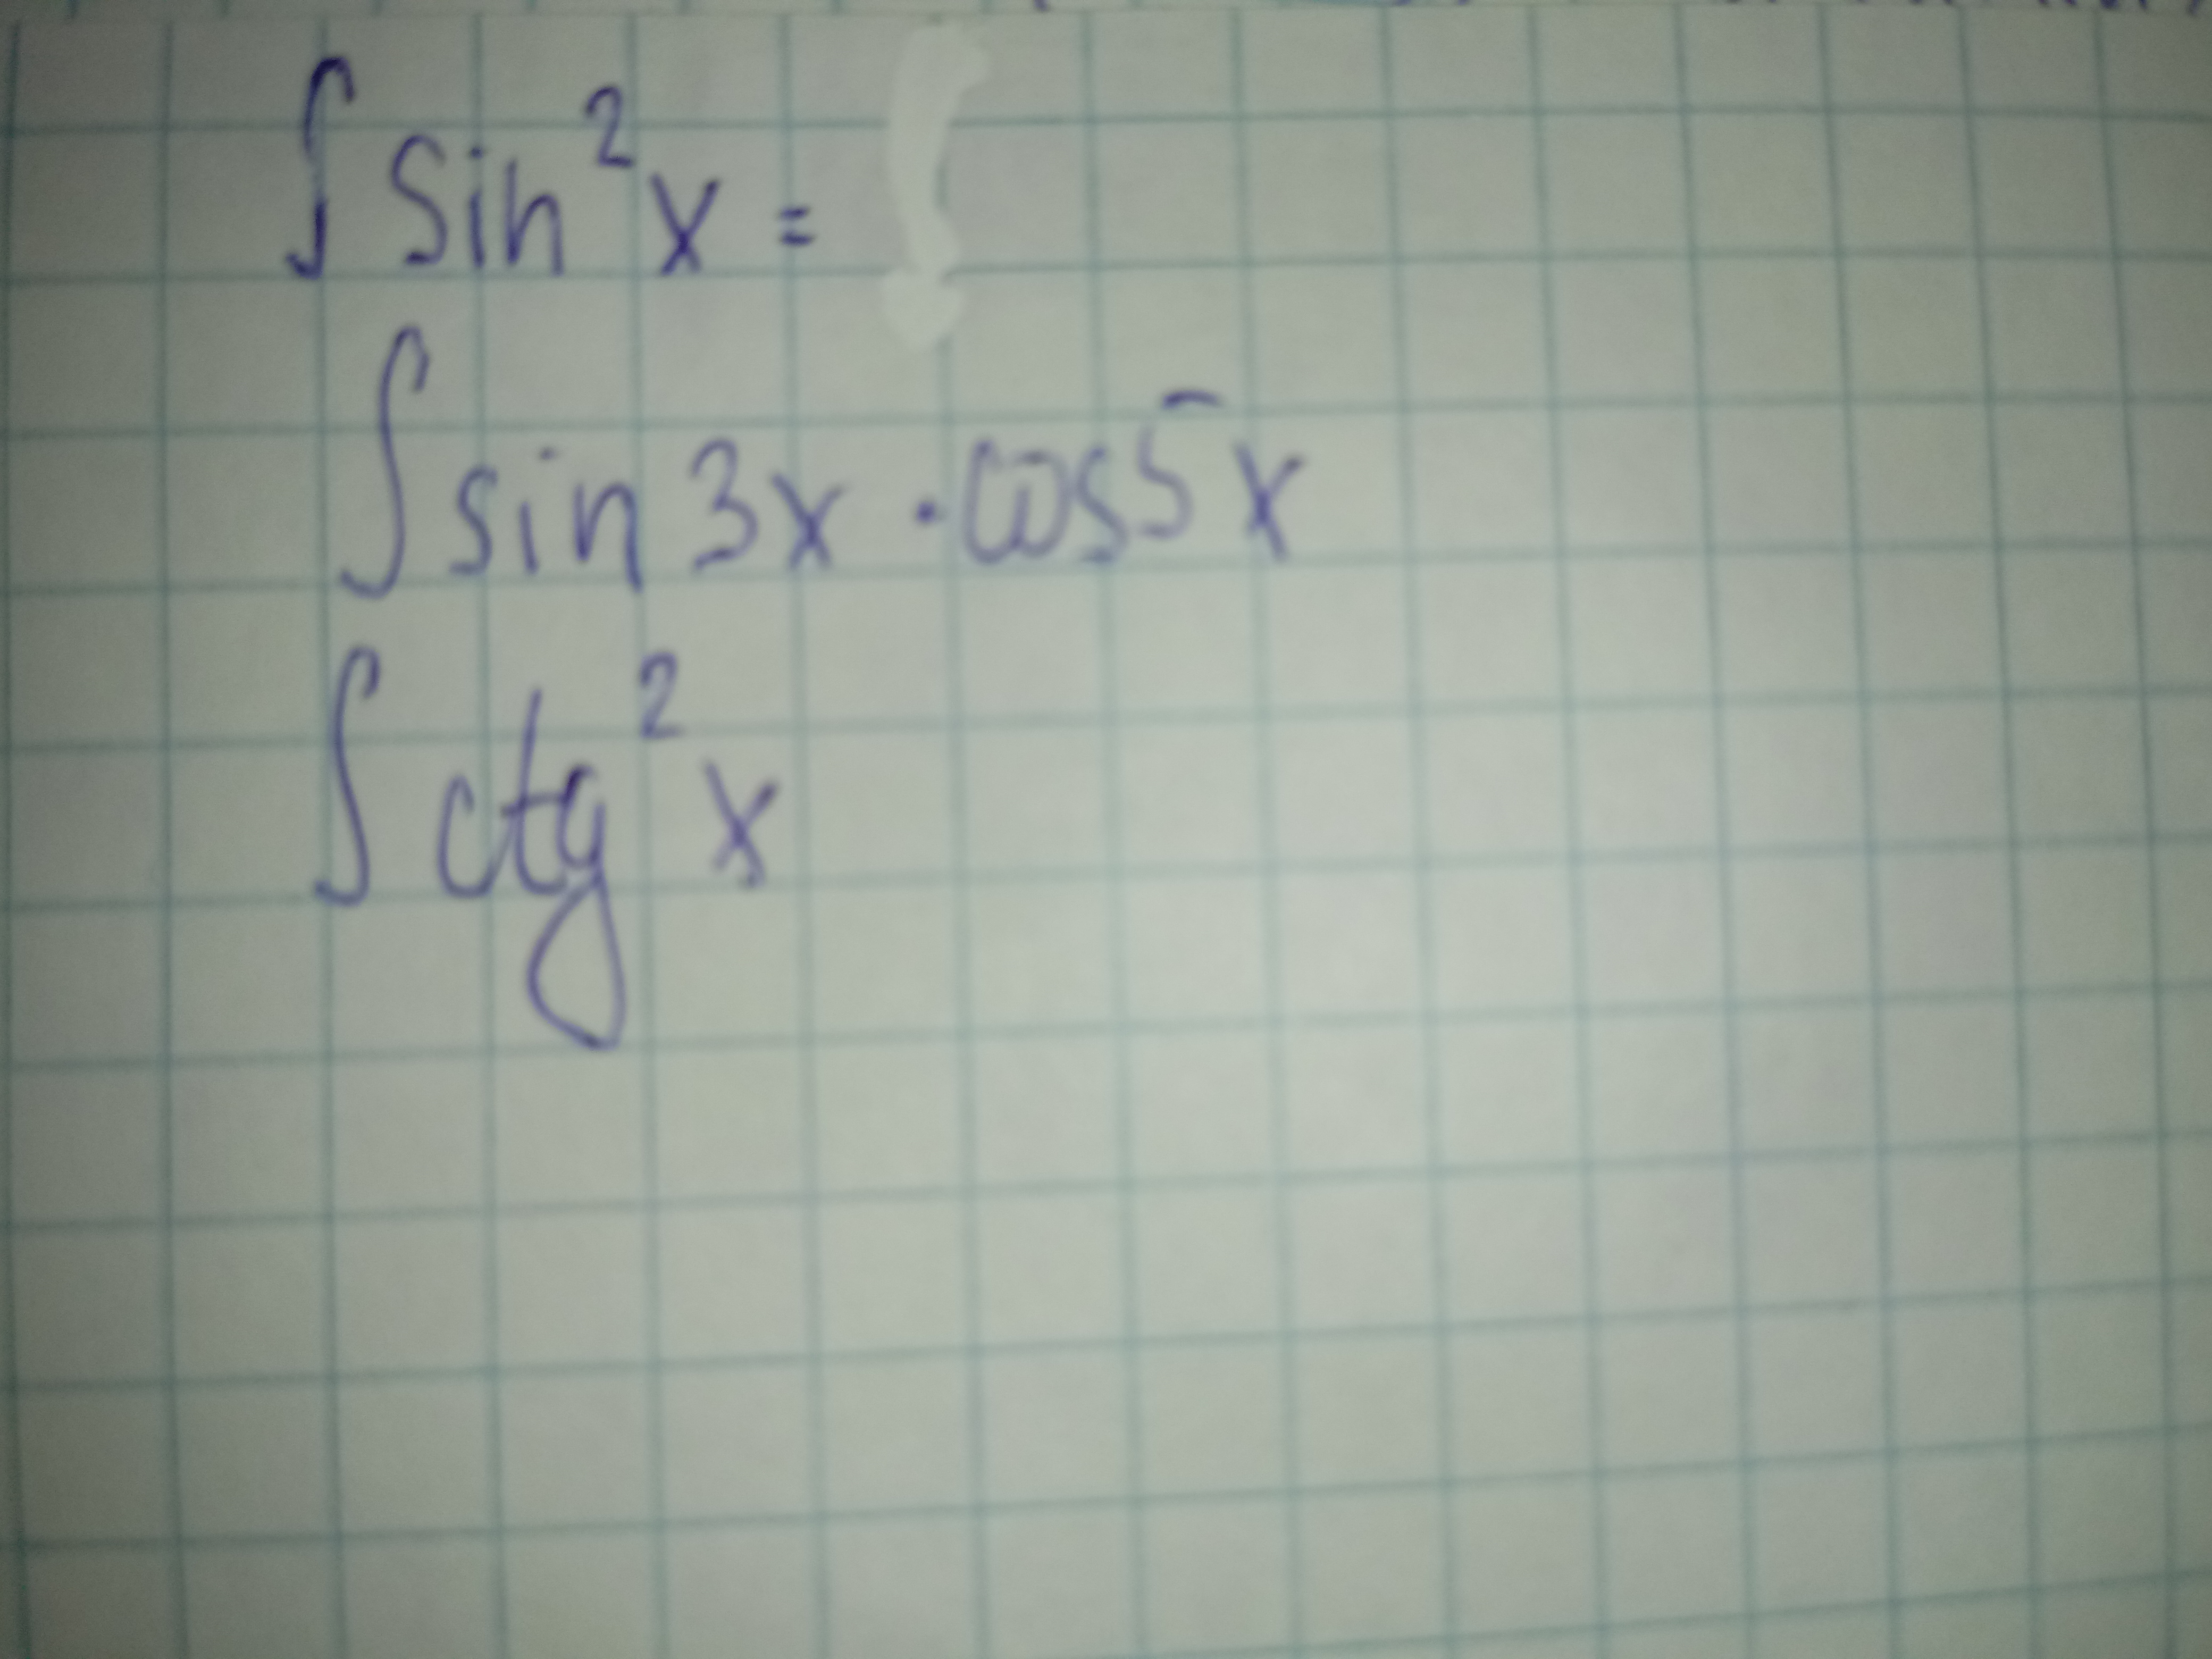 ∫ sin²x =
∫ sin 3x · cos 5x
∫ ctg² x